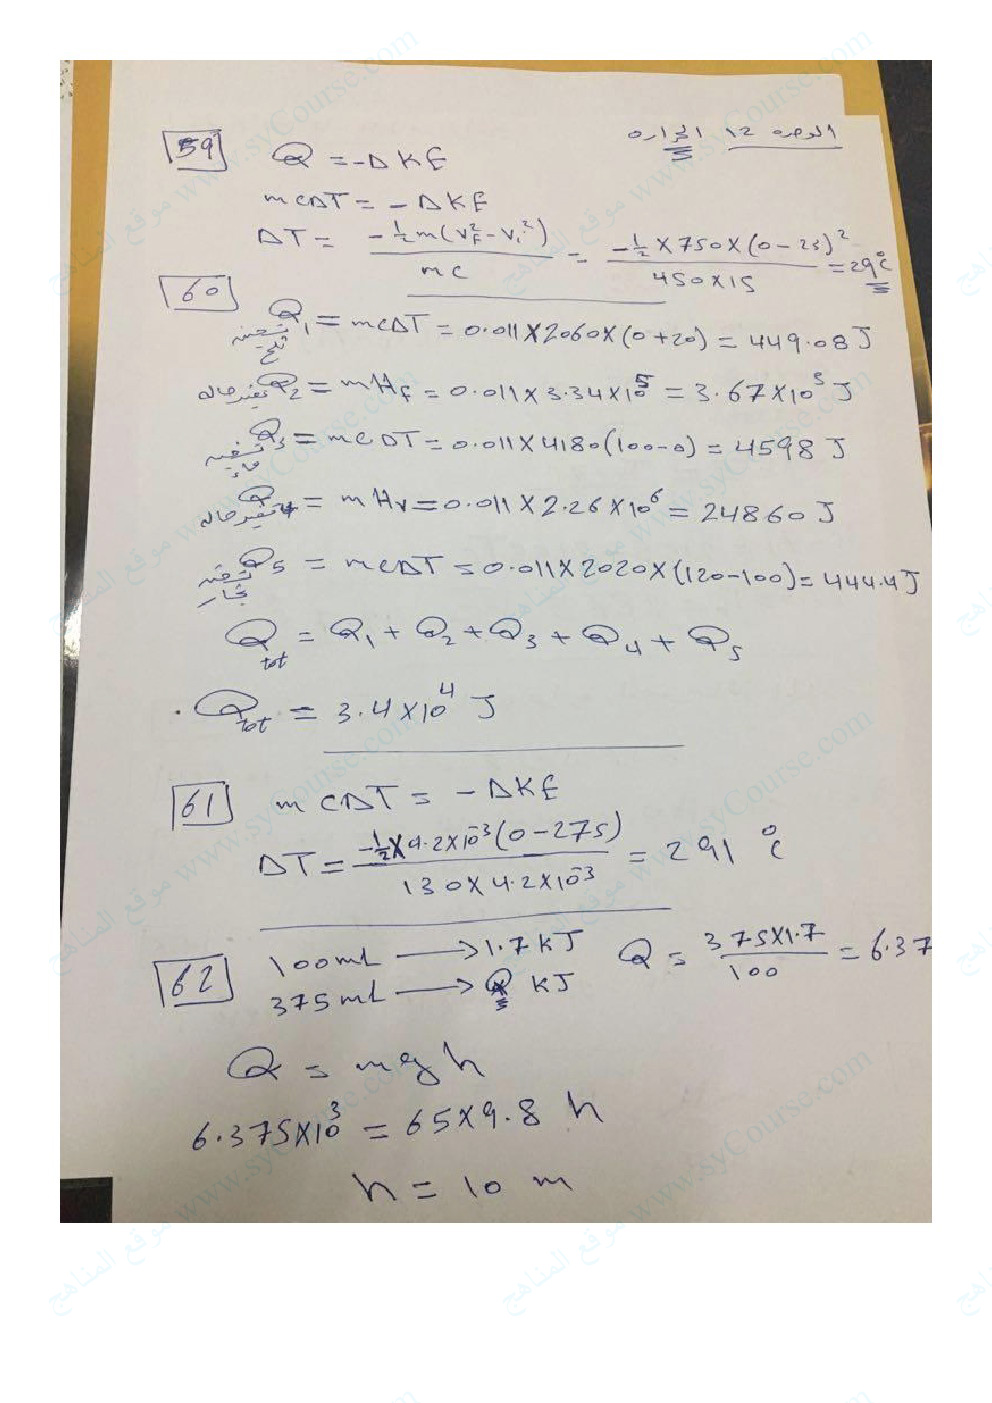 الوحدة 12 الحرارة
59
Q = -ΔKE
mcΔT = -ΔKE
ΔT = -½m(Vf² - Vi²) / mc = -½ × 750 × (0 - 23)² / 450 × 15 = 29°C
60
Q1 = mcΔT = 0.011 × 2060 × (0+20) = 449.08 J
تسخين ثلج
Q2 = mHf = 0.011 × 3.34 × 10⁵ = 3.67 × 10³ J
تغير حاله
Q3 = mcΔT = 0.011 × 4180 (100-0) = 4598 J
تسخين ماء
Q4 = mHv = 0.011 × 2.26 × 10⁶ = 24860 J
تغير حاله
Q5 = mcΔT = 0.011 × 2020 × (120-100) = 444.4 J
تسخين بخار
Qtot = Q1 + Q2 + Q3 + Q4 + Q5
Qtot = 3.4 × 10⁴ J
61
mcΔT = -ΔKE
ΔT = -½ × 4.2 × 10⁻³ (0 - 275) / 130 × 4.2 × 10⁻³ = 291 °C
62
100 mL → 1.7 kJ
375 mL → Q kJ
Q = 375 × 1.7 / 100 = 6.37
Q = mgh
6.375 × 10³ = 65 × 9.8 h
h = 10 m
موقع المناهج www.syCourse.com